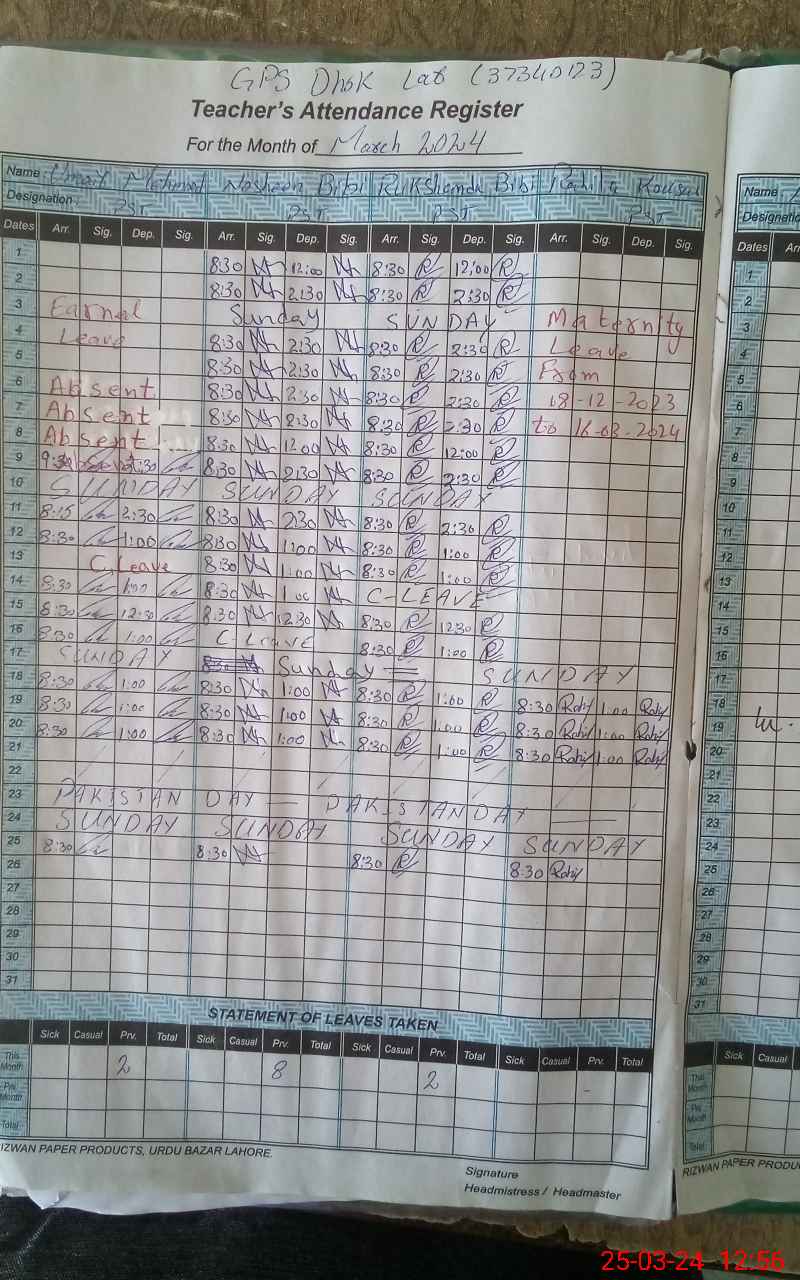 GPS Dhok Lab (37340123)
Teacher's Attendance Register
For the Month of March 2024
Name Umair Mehmood Nosheen Bibi Rukshanda Bibi Rahila Kousar
Designation PST PST PST PST
Dates Arr. Sig. Dep. Sig. Arr. Sig. Dep. Sig. Arr. Sig. Dep. Sig. Arr. Sig. Dep. Sig.
1 8:30 12:00 8:30 12:00
2 8:30 2:30 8:30 2:30
3 Earnal Sunday SUNDAY Maternity
4 Leave 8:30 2:30 8:30 2:30 Leave
5 8:30 2:30 8:30 2:30 From
6 Absent 8:30 2:30 8:30 2:30 18-12-2023
7 Absent 8:30 2:30 8:30 2:30 to 16-03-2024
8 Absent 8:30 12:00 8:30 12:00
9 9:30 2:30 8:30 2:30 8:30 2:30
10 SUNDAY SUNDAY SUNDAY
11 8:15 2:30 8:30 2:30 8:30 2:30
12 8:30 1:00 8:30 1:00 8:30 1:00
13 C.Leave 8:30 1:00 8:30 1:00
14 8:30 1:00 8:30 1:00 C-LEAVE
15 8:30 12:30 8:30 12:30 8:30 12:30
16 8:30 1:00 C-Leave 8:30 1:00
17 SUNDAY Sunday SUNDAY
18 8:30 1:00 8:30 1:00 8:30 1:00 8:30 Rahil 1:00 Rahil
19 8:30 1:00 8:30 1:00 8:30 1:00 8:30 Rahil 1:00 Rahil
20 8:30 1:00 8:30 1:00 8:30 1:00 8:30 Rahil 1:00 Rahil
21
22
23 PAKISTAN DAY — PAKISTAN DAY —
24 SUNDAY SUNDAY SUNDAY SUNDAY
25 8:30 8:30 8:30 8:30 Rahil
26
27
28
29
30
31
STATEMENT OF LEAVES TAKEN
Sick Casual Prv. Total Sick Casual Prv. Total Sick Casual Prv. Total Sick Casual Prv. Total
This Month 2 8 2 -
Prv. Month
Total
RIZWAN PAPER PRODUCTS, URDU BAZAR LAHORE.
Signature
Headmistress / Headmaster
Name
Designatio
Dates Arr
1
2
3
4
5
6
7
8
9
10
11
12
13
14
15
16
17
18
19
20
21
22
23
24
25
26
27
28
29
30
31
Sick Casual
This Month
Prv. Month
Total
RIZWAN PAPER PRODU
25-03-24 12:56